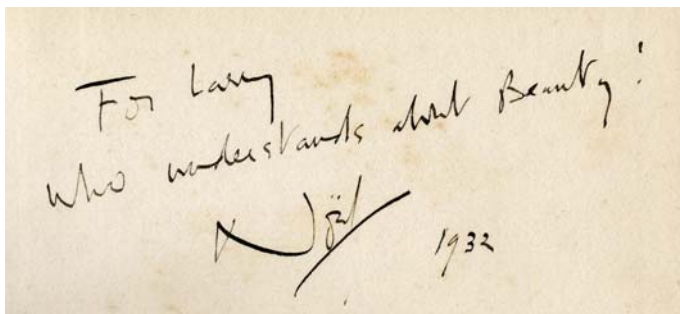 For Larry
who understands about Beauty!
Noël
1932